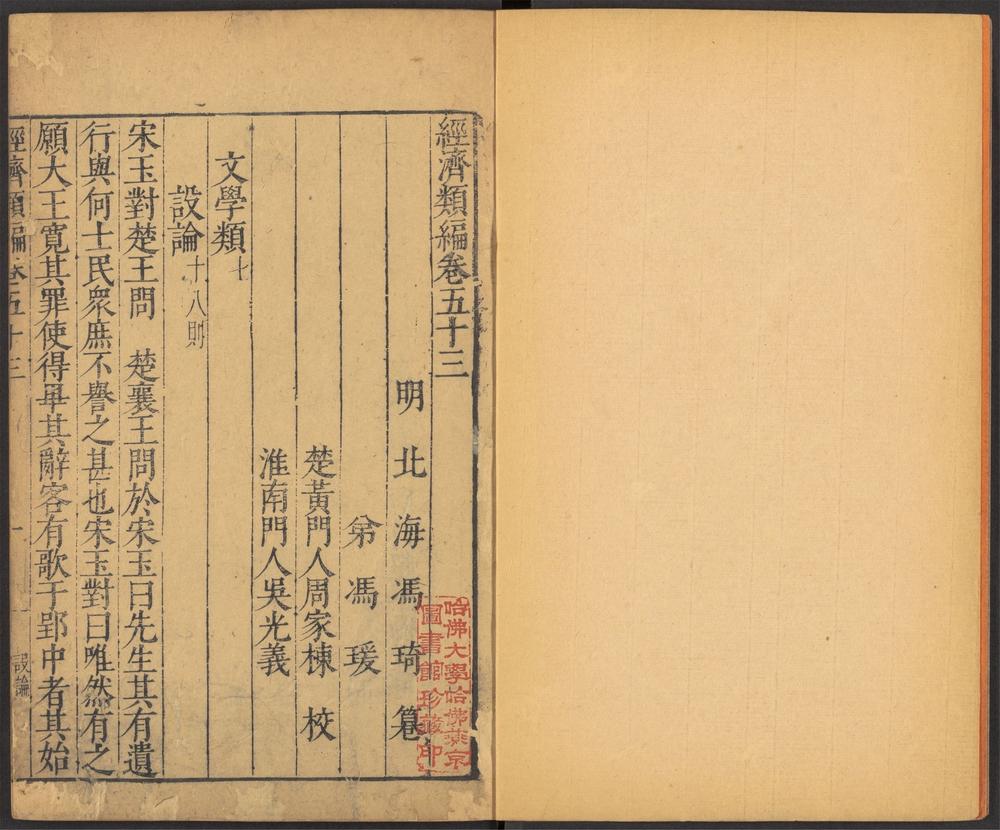 經濟類編卷五十三
明北海馮琦篹
弟馮瑗
楚黃門人周家棟校
淮南門人吳光義
文學類七
設論十八則
宋玉對楚王問　楚襄王問於宋玉曰先生其有遺
行與何士民衆庶不譽之甚也宋玉對曰唯然有之
願大王寬其罪使得畢其辭客有歌于郢中者其始
經濟類編卷五十三　一　設論
哈佛大學哈佛燕京
圖書館珍藏印